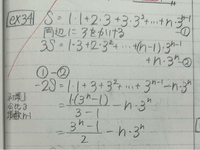 ex34 S = 1·1+2·3+3·3²+…+n·3ⁿ⁻¹
両辺に3をかける
3S = 1·3+2·3²+…+(n-1)·3ⁿ⁻¹
+n·3ⁿ-②
①-②
-2S = 1·1+3+3²+…+3ⁿ⁻¹-n·3ⁿ
= 1(3ⁿ-1)/3-1 - n·3ⁿ
= 3ⁿ-1/2 - n·3ⁿ